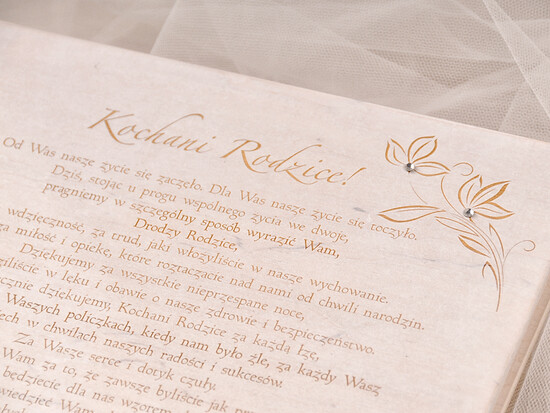 Kochani Rodzice!
Od Was nasze życie się zaczęło. Dla Was nasze życie się toczyło.
Dziś, stojąc u progu wspólnego życia we dwoje,
pragniemy w szczególny sposób wyrazić Wam,
Drodzy Rodzice,
wdzięczność, za trud, jaki włożyliście w nasze wychowanie.
za miłość i opiekę, które roztaczacie nad nami od chwili narodzin.
Dziękujemy za wszystkie nieprzespane noce,
w lęku i obawie o nasze zdrowie i bezpieczeństwo.
dziękujemy, Kochani Rodzice za każdą łzę,
Waszych policzkach, kiedy nam było źle, za każdy Wasz
w chwilach naszych radości i sukcesów.
Za Wasze serce i dotyk czuły.
Wam za to, że zawsze byliście jak
będziecie dla nas wzorem
Wam